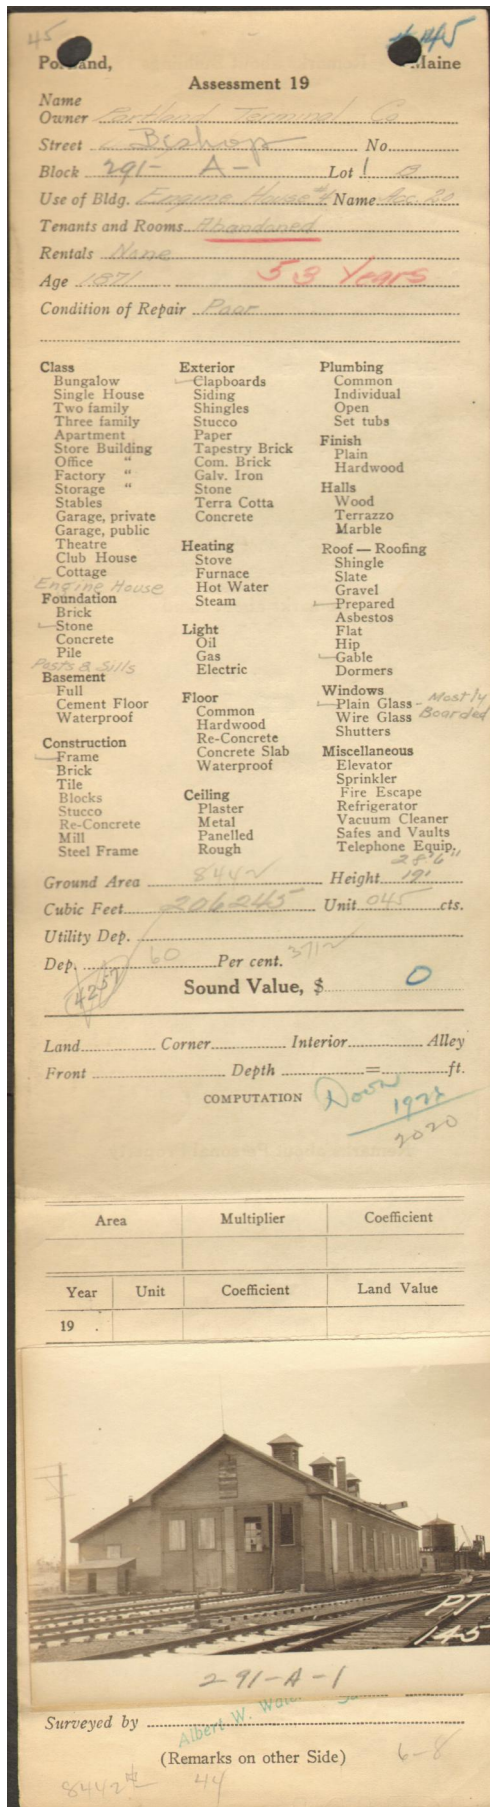 45
445
Portland, Maine
Assessment 19
Name
Owner Portland Terminal Co
Street Bishop No.
Block 291- A- Lot 1
Use of Bldg. Engine House #1 Name Acc. 20
Tenants and Rooms Abandoned
Rentals None
Age 1871 53 Years
Condition of Repair Poor
Class
Bungalow
Single House
Two family
Three family
Apartment
Store Building
Office "
Factory "
Storage "
Stables
Garage, private
Garage, public
Theatre
Club House
Cottage
Engine House
Foundation
Brick
Stone
Concrete
Pile
Posts & Sills
Basement
Full
Cement Floor
Waterproof
Construction
Frame
Brick
Tile
Blocks
Stucco
Re-Concrete
Mill
Steel Frame
Exterior
Clapboards
Siding
Shingles
Stucco
Paper
Tapestry Brick
Com. Brick
Galv. Iron
Stone
Terra Cotta
Concrete
Heating
Stove
Furnace
Hot Water
Steam
Light
Oil
Gas
Electric
Floor
Common
Hardwood
Re-Concrete
Concrete Slab
Waterproof
Ceiling
Plaster
Metal
Panelled
Rough
Plumbing
Common
Individual
Open
Set tubs
Finish
Plain
Hardwood
Halls
Wood
Terrazzo
Marble
Roof — Roofing
Shingle
Slate
Gravel
Prepared
Asbestos
Flat
Hip
Gable
Dormers
Windows
Plain Glass - Mostly
Wire Glass Boarded
Shutters
Miscellaneous
Elevator
Sprinkler
Fire Escape
Refrigerator
Vacuum Cleaner
Safes and Vaults
Telephone Equip.
28'6"
Ground Area 8442 Height 19'
Cubic Feet 206245 Unit 045 cts.
Utility Dep.
Dep. 60 Per cent. 3712
4257
Sound Value, $ 0
Land Corner Interior Alley
Front Depth = ft.
COMPUTATION
1922
2020
Area Multiplier Coefficient
Year Unit Coefficient Land Value
19 .
PT
145
291-A-1
Surveyed by Albert W.
(Remarks on other Side)
6-8
8442 44